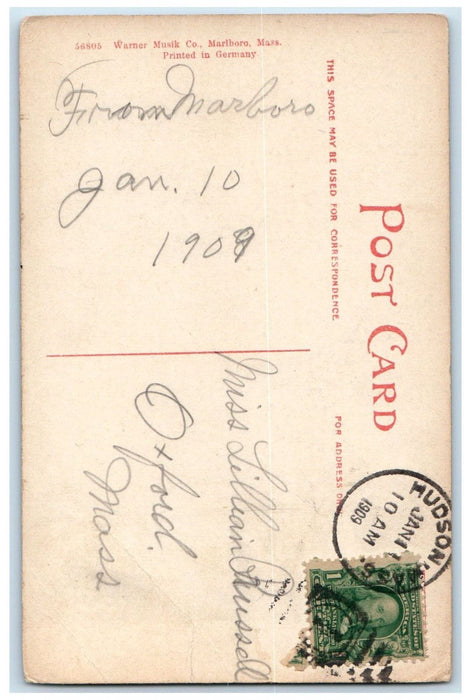 56805 Warner Musik Co., Marlboro, Mass.
Printed in Germany.
THIS SPACE MAY BE USED FOR CORRESPONDENCE
POST CARD
FOR ADDRESS ONLY
From Marboro
Jan. 10
1909
Miss Lillian Russell
Oxford.
Mass
HUDSON,
JAN 1
10 AM
1909
1